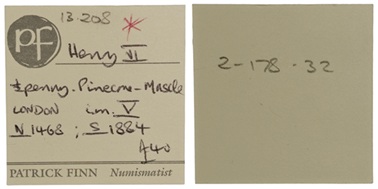 13.208
pf
Henry VI
½penny. Pinecone-Mascle
LONDON i.m. V
N1468 ; S1884
PATRICK FINN Numismatist
2-178.32